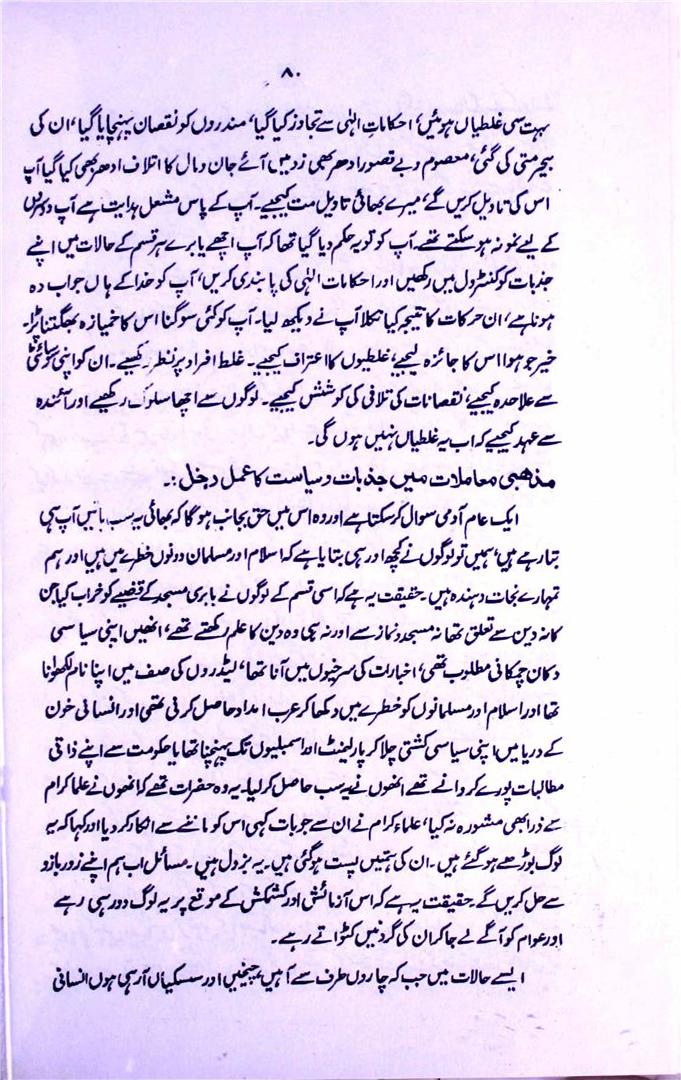 ۸۰
بہت سی غلطیاں ہوئیں، احکاماتِ الہٰی سے تجاوز کیا گیا، مندروں کو نقصان پہنچایا گیا، ان کی
بیحرمتی کی گئی، معصوم و بے قصور ادھر بھی زد میں آئے جان و مال کا اتلاف ادھر بھی کیا گیا آپ
اس کی تاویل کریں گے، میرے بھائی تاویل مت کیجیے۔ آپ کے پاس مشعل ہدایت ہے آپ دوسروں
کے لیے نمونہ ہو سکتے تھے۔ آپ کو تو یہ حکم دیا گیا تھا کہ آپ اچھے یا برے ہر قسم کے حالات میں اپنے
جذبات کو کنٹرول میں رکھیں اور احکامات الہٰی کی پابندی کریں، آپ کو خدا کے ہاں جواب دہ
ہونا ہے، ان حرکات کا نتیجہ کیا نکلا آپ نے دیکھ لیا۔ آپ کو کئی سو گنا اس کا خمیازہ بھگتنا پڑا۔
خیر جو ہوا اس کا جائزہ لیجیے، غلطیوں کا اعتراف کیجیے۔ غلط افراد پر نظر رکھیے۔ ان کو اپنی سوسائٹی
سے علاحدہ کیجیے، نقصانات کی تلافی کی کوشش کیجیے۔ لوگوں سے اچھا سلوک رکھیے اور آئندہ
سے عہد کیجیے کہ اب یہ غلطیاں نہیں ہوں گی۔
مذہبی معاملات میں جذبات و سیاست کا عمل دخل :۔
ایک عام آدمی سوال کر سکتا ہے اور وہ اس میں حق بجانب ہوگا کہ بھائی یہ سب باتیں آپ ہی
بتا رہے ہیں، ہمیں تو لوگوں نے کچھ اور ہی بتایا ہے کہ اسلام اور مسلمان دونوں خطرے میں ہیں اور ہم
تمہارے نجات دہندہ ہیں۔ حقیقت یہ ہے کہ اسی قسم کے لوگوں نے بابری مسجد کے قضیے کو خراب کیا جن
کا نہ دین سے تعلق تھا نہ مسجد و نماز سے اور نہ ہی وہ دین کا علم رکھتے تھے، انھیں اپنی سیاسی
دکان چمکانی مطلوب تھی، اخبارات کی سرخیوں میں آنا تھا، لیڈروں کی صف میں اپنا نام لکھوانا
تھا اور اسلام اور مسلمانوں کو خطرے میں دکھا کر عرب امداد حاصل کرنی تھی اور انسانی خون
کے دریا میں اپنی سیاسی کشتی چلا کر پارلیمنٹ اور اسمبلیوں تک پہنچنا تھا یا حکومت سے اپنے ذاتی
مطالبات پورے کروانے تھے انھوں نے یہ سب حاصل کر لیا۔ یہ وہ حضرات تھے کہ انھوں نے علماء کرام
سے ذرا بھی مشورہ نہ کیا، علماء کرام نے ان سے جو بات کہی اس کو ماننے سے انکار کر دیا اور کہا کہ یہ
لوگ بوڑھے ہو گئے ہیں۔ ان کی ہمتیں پست ہوگئی ہیں۔ یہ بزدل ہیں۔ مسائل اب ہم اپنے زور بازو
سے حل کریں گے۔ حقیقت یہ ہے کہ اس آزمائش اور کشمکش کے موقع پر یہ لوگ دور ہی رہے
اور عوام کو آگے لے جا کر ان کی گردنیں کٹواتے رہے۔
ایسے حالات میں جب کہ چاروں طرف سے آہیں، چیخیں اور سسکیاں آرہی ہوں انسانی